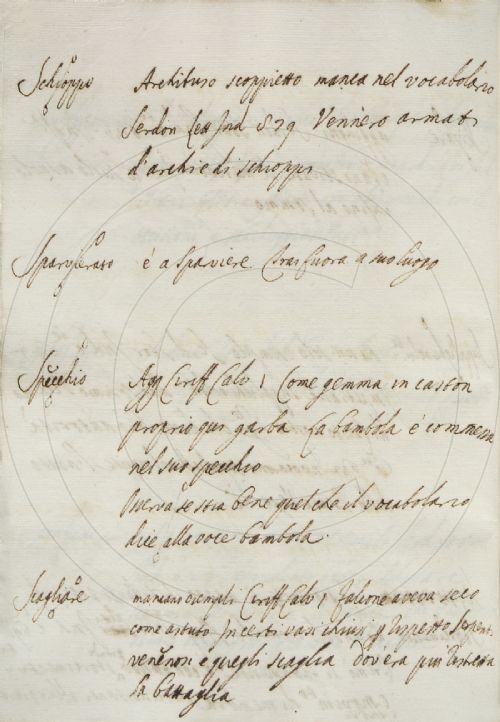 Schioppo Archibuso scoppietto manca nel vocabolario
Serdon lett Ind 879 Vennero armati
d'archi e di schioppi
Sparvierato è a sparviere trasfuora a suo luogo
Specchio Agg Ciriff Calv 1 Come gemma in caston
proprio qui garba La bambola è commessa
nel suo specchio
serva se stia bene quel che il vocabolario
dice alla voce bambola
Scagliare mancano esempli Ciriff Calv 1 Falcone aveva seco
come astuto In certi vasi chiusi p rispetto serpenti
venenon e quegli scaglia Dov'era più
la battaglia